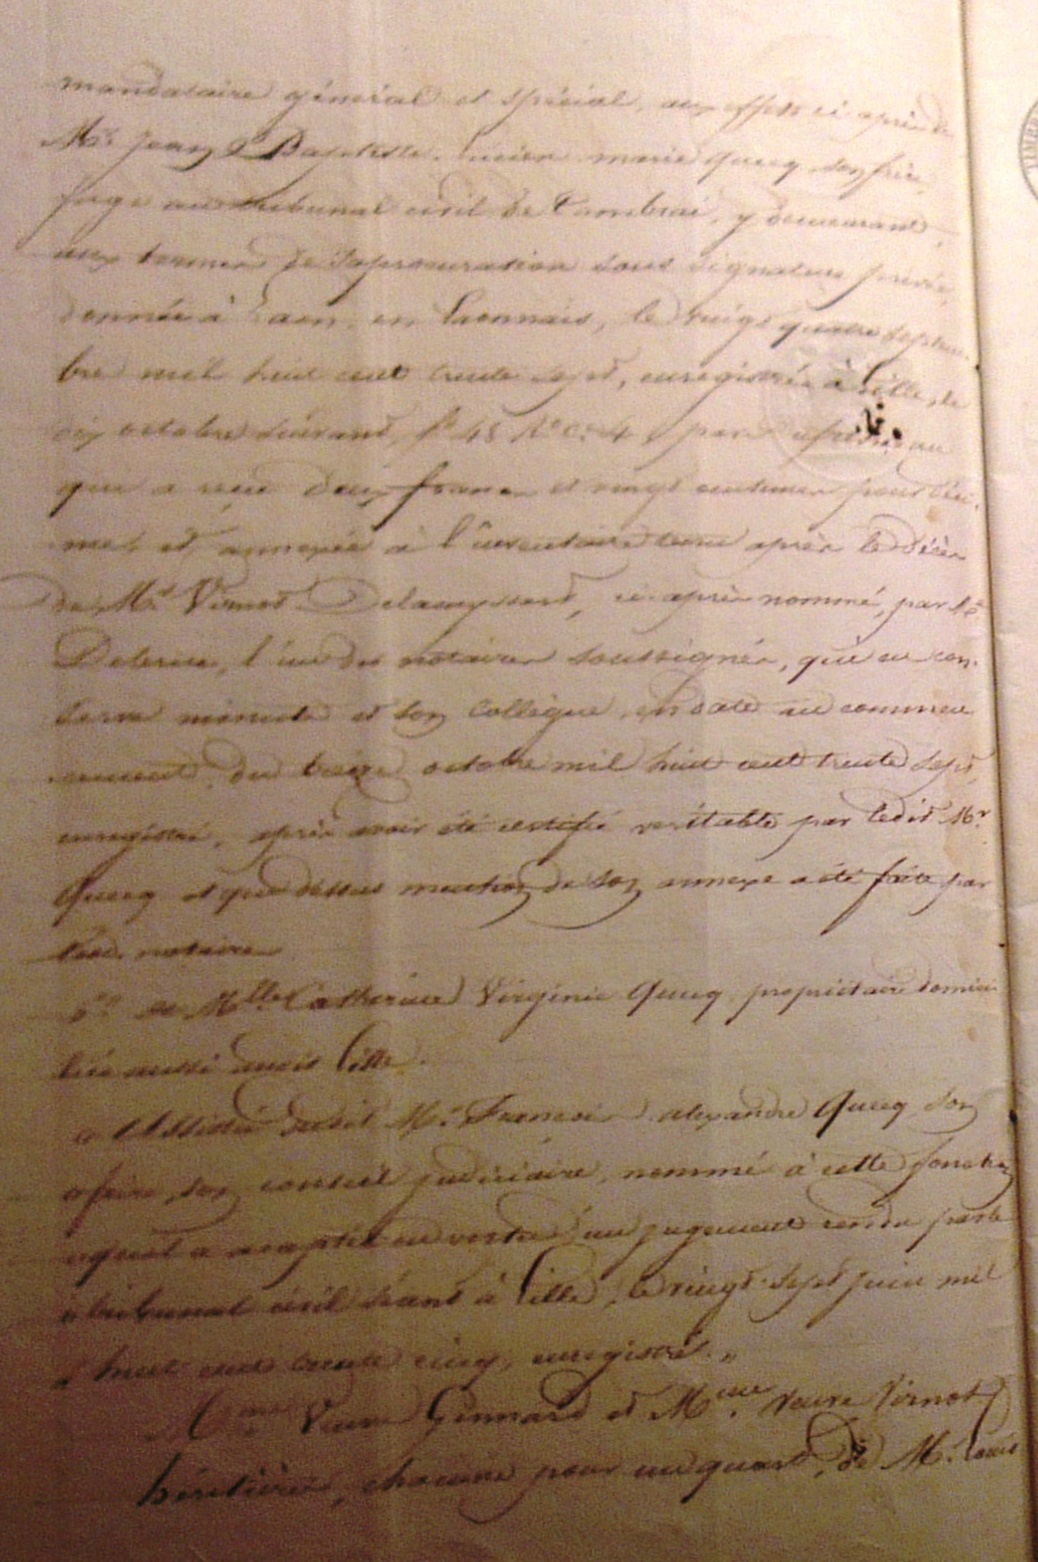 mandataire général et spécial, aux effets ci après de
Mr. Jean Baptiste Lucien marie Quecq son frère,
Juge au tribunal civil de Cambrai, y demeurant,
aux termes de sa procuration sous signature privée,
donnée à Laon, en Laonnais, le vingt quatre septem-
bre mil huit cent trente sept, enregistrée à Lille, le
dix octobre suivant, fo. 48 Ro. C. 4, par
qui a reçu deux francs et vingt centimes pour déci-
mes, et annexée à l'inventaire tenu après le décès
de Mr. Virnot Delamyssart, ci-après nommé, par Me.
l'un des notaires soussignés, qui en con-
serve minute et son Collègue, en date au commen
cement du treize octobre mil huit cent trente sept,
enregistré, après avoir été certifié véritable par ledit Mr.
Quecq et que dessus mention de son annexe a été faite par
notaire
de Mlle. Catherine Virginie Quecq, propriétaire domici
liée aussi audit Lille.
Assistée dudit Mr. François Alexandre Quecq son
frère, son conseil judiciaire, nommé à cette fonction
qu'il a acceptée en vertu d'un jugement rendu par le
tribunal civil séant à Lille, le vingt-sept juin mil
huit cent trente cinq, enregistré. "
Veuve Gennard et Mme. Veuve Virnot
héritières, chacune pour un quart, de Mr. Louis